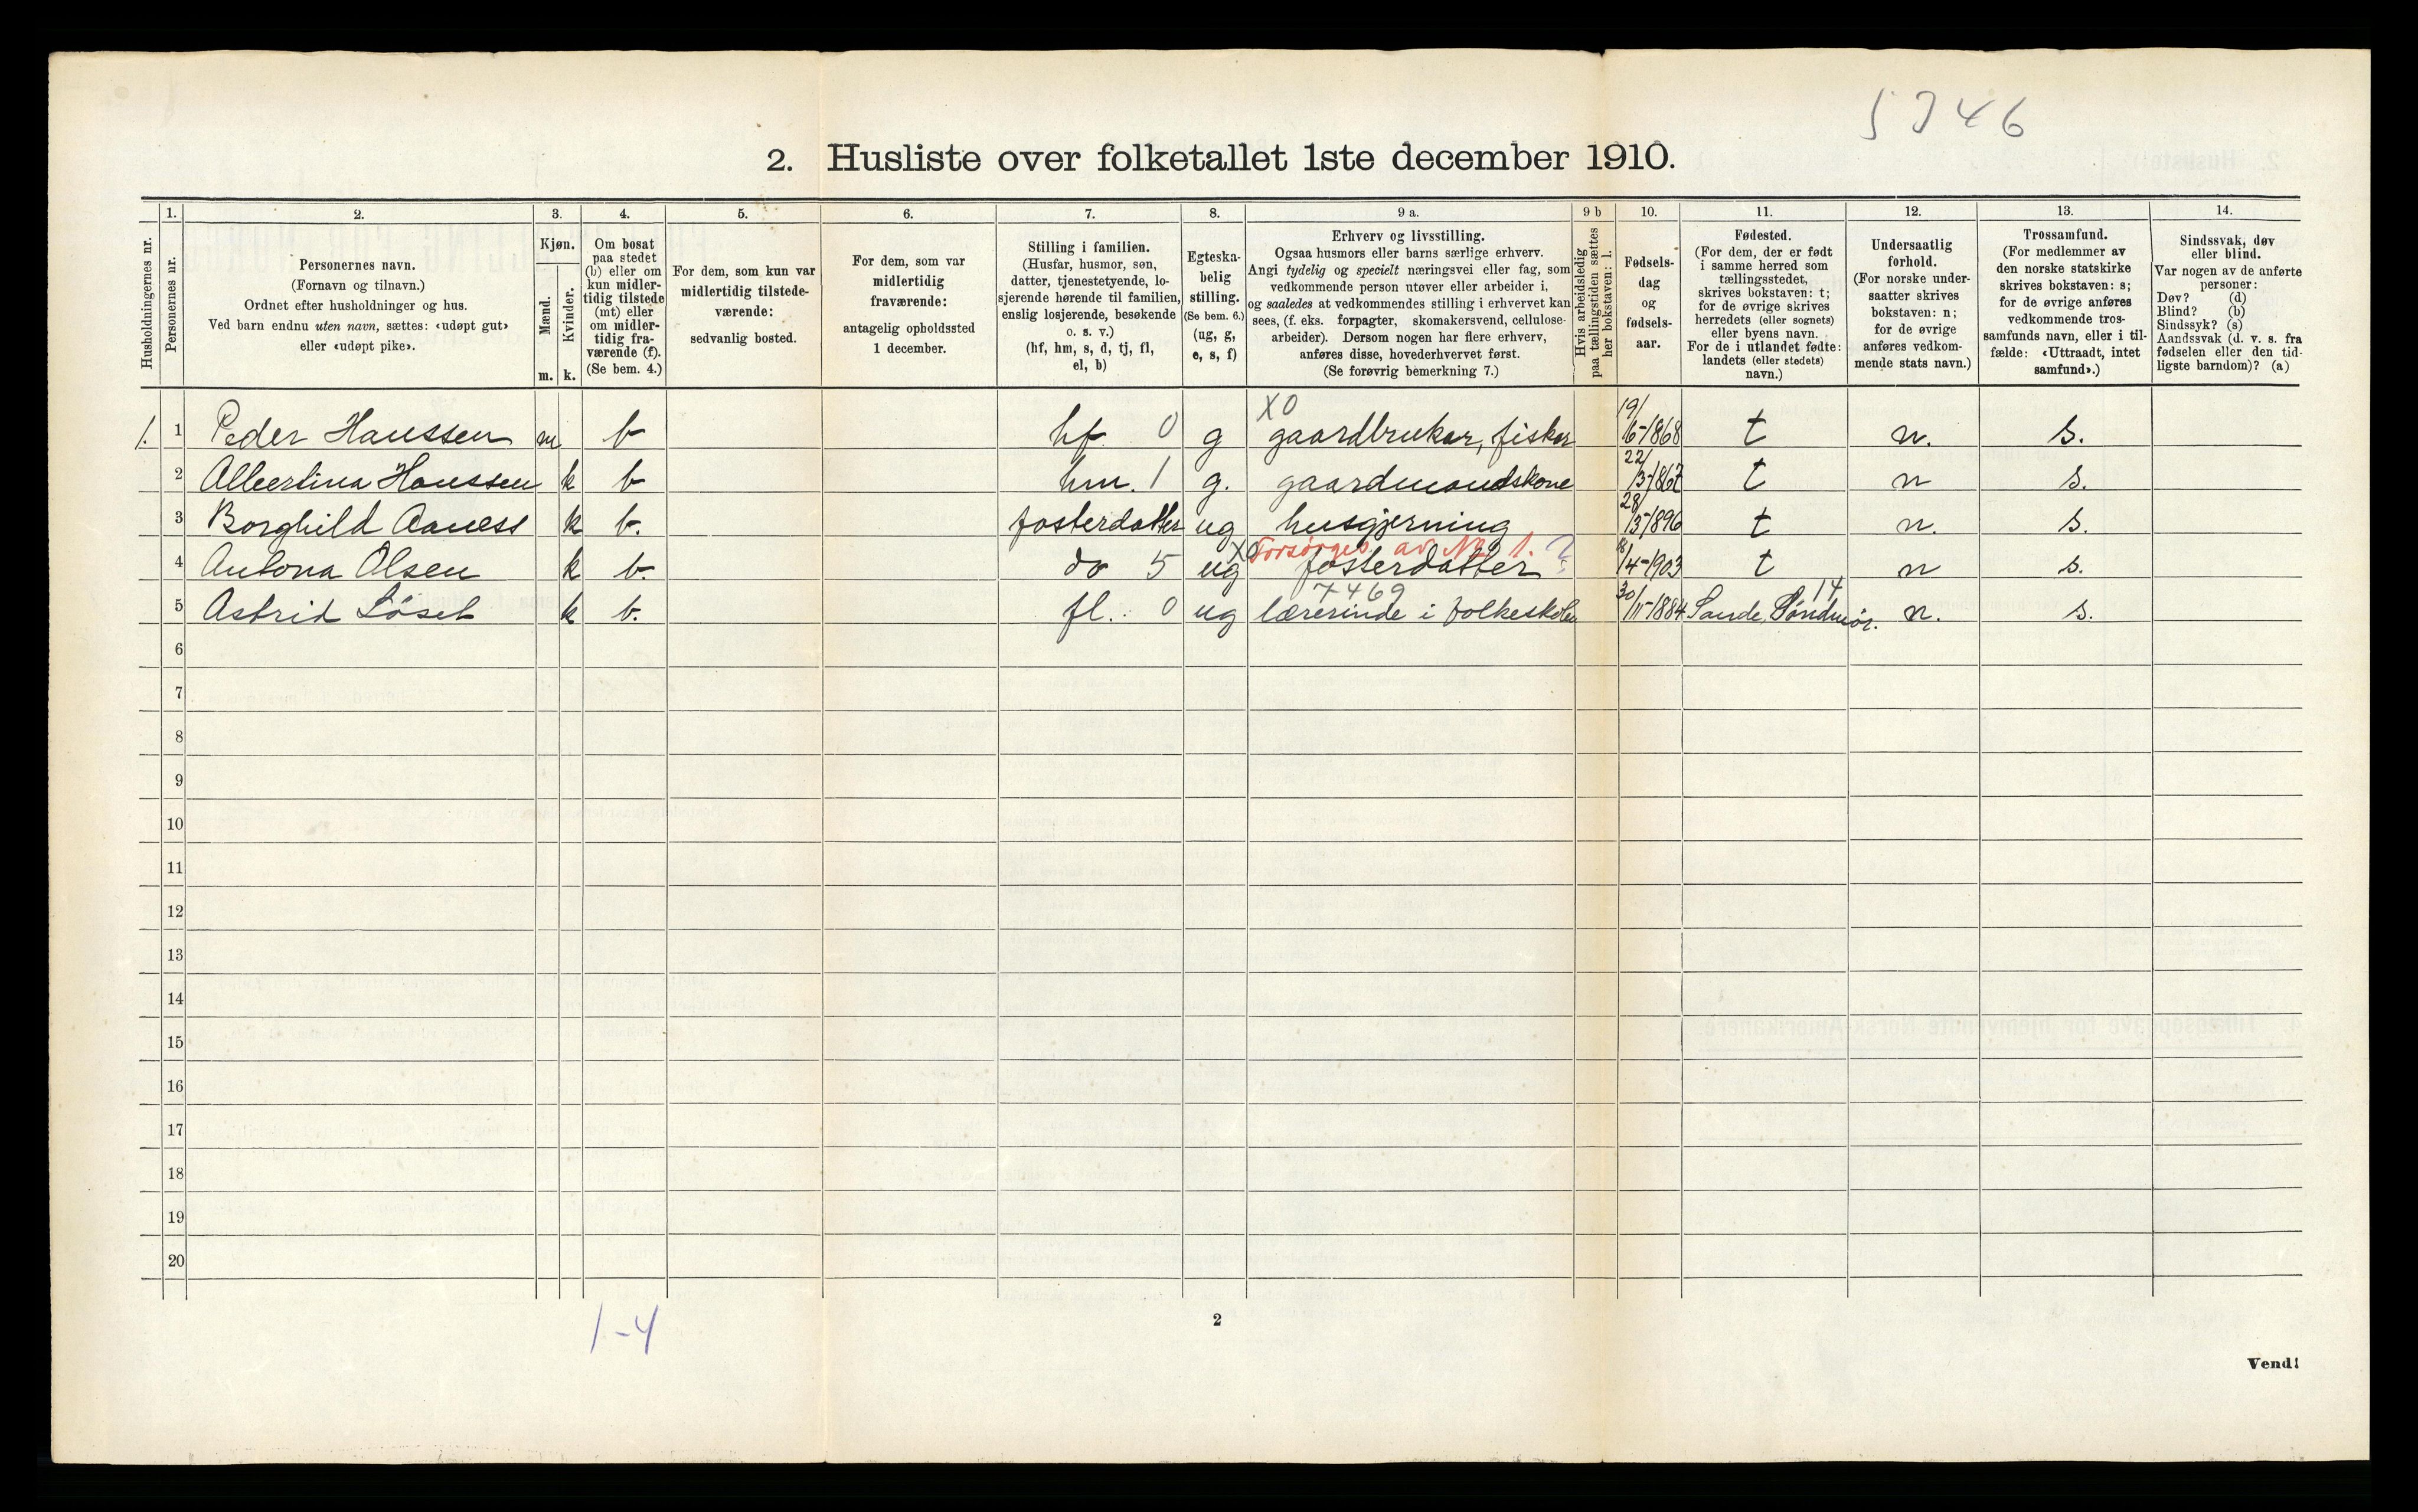 5346
2. Husliste over folketallet 1ste december 1910.
Husholdningernes nr.
1.
Personernes nr.
2.
Personernes navn.
(Fornavn og tilnavn.)
Ordnet efter husholdninger og hus.
Ved barn endnu uten navn, sættes: «udøpt gut»
eller «udøpt pike».
3.
Kjøn.
Mænd.
Kvinder.
m. k.
4.
Om bosat
paa stedet
(b) eller om
kun midler-
tidig tilstede
(mt) eller
om midler-
tidig fra-
værende (f).
(Se bem. 4.)
5.
For dem, som kun var
midlertidig tilstede-
værende:
sedvanlig bosted.
6.
For dem, som var
midlertidig
fraværende:
antagelig opholdssted
1 december.
7.
Stilling i familien.
(Husfar, husmor, søn,
datter, tjenestetyende, lo-
sjerende hørende til familien,
enslig losjerende, besøkende
o. s. v.)
(hf, hm, s, d, tj, fl,
el, b)
8.
Egteska-
belig
stilling.
(Se bem. 6.)
(ug, g,
e, s, f)
9 a.
Erhverv og livsstilling.
Ogsaa husmors eller barns særlige erhverv.
Angi tydelig og specielt næringsvei eller fag, som
vedkommende person utøver eller arbeider i,
og saaledes at vedkommendes stilling i erhvervet kan
sees, (f. eks. forpagter, skomakersvend, cellulose-
arbeider). Dersom nogen har flere erhverv,
anføres disse, hovederhvervet først.
(Se forøvrig bemerkning 7.)
9 b
Hvis arbeidsledig
paa tællingstiden sættes
her bokstaven: l.
10.
Fødsels-
dag
og
fødsels-
aar.
11.
Fødested.
(For dem, der er født
i samme herred som
tællingsstedet,
skrives bokstaven: t;
for de øvrige skrives
herredets (eller sognets)
eller byens navn.
For de i utlandet fødte:
landets (eller stedets)
navn.)
12.
Undersaatlig
forhold.
(For norske under-
saatter skrives
bokstaven: n;
for de øvrige
anføres vedkom-
mende stats navn.)
13.
Trossamfund.
(For medlemmer av
den norske statskirke
skrives bokstaven: s;
for de øvrige anføres
vedkommende tros-
samfunds navn, eller i til-
fælde: «Uttraadt, intet
samfund».)
14.
Sindssvak, døv
eller blind.
Var nogen av de anførte
personer:
Døv? (d)
Blind? (b)
Sindssyk? (s)
Aandssvak (d. v. s. fra
fødselen eller den tid-
ligste barndom)? (a)
X0
1. 1 Peder Hanssen m b hf 0 g gaardbruker, fisker 19/6-1868 t n. s.
2 Albertina Hanssen k b hm. 1 g. gaardmandskone 22/3-1867 t n s.
3 Borghild Aaness k b. fosterdatter ug husgjerning 28/3-1896 t n. s.
X0 Forsørges av No 1. ?
4 Antona Olsen k b. do 5 ug fosterdatter /4-1903 t n s.
7469 14
5 Astrid Löset k b. fl. 0 ug lærerinde i folkeskolen 30/11-1884 Sande, Söndmör. n. s.
6
7
8
9
10
11
12
13
14
15
16
17
18
19
20
1-4
2
Vend!